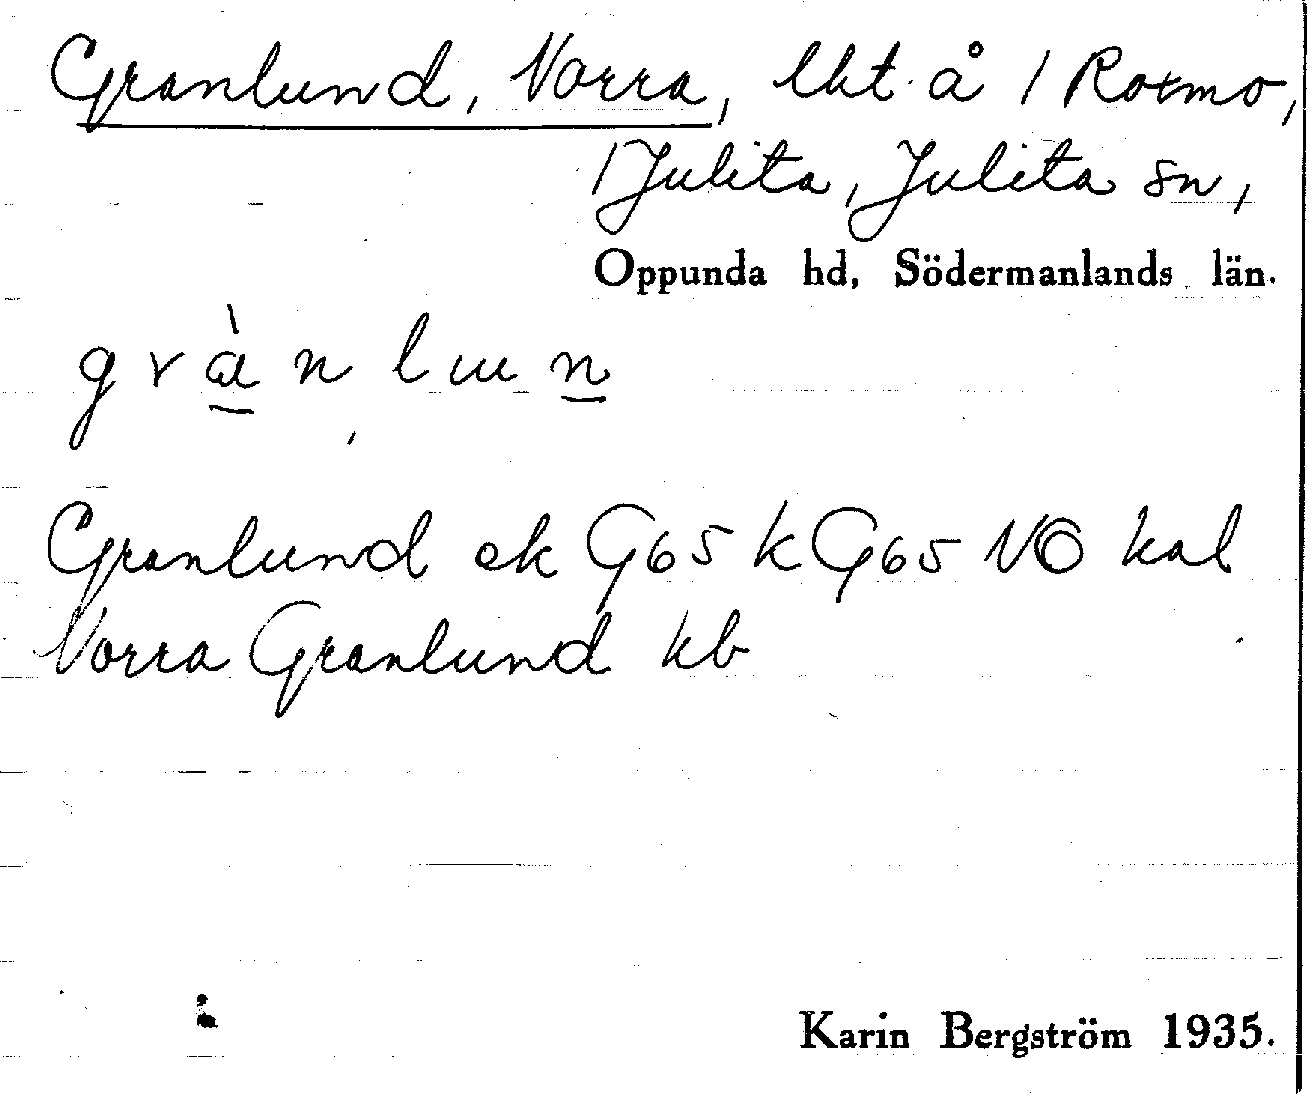 Granlund, Norra, lht. å 1 Rotmo,
1 Julita, Julita sn,
Oppunda hd, Södermanlands län.
gràn lun
Granlund ek G65 k G65 NO kal
Norra Granlund kb
Karin Bergström 1935.